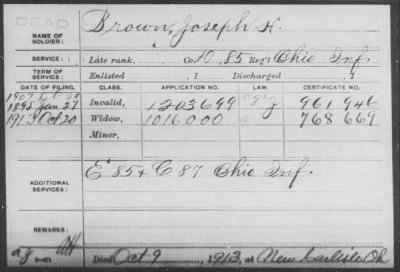 DEAD
NAME OF SOLDIER: Brown, Joseph H.
SERVICE: Late rank, Co. 85 Reg't Ohio Inf.
TERM OF SERVICE: Enlisted , 1 Discharged , 1
DATE OF FILING. CLASS. APPLICATION NO. LAW. CERTIFICATE NO.
1907
1898 Jan 27 Invalid, 1203699 961946
1913 Oct 20 Widow, 1016000 768669
Minor,
ADDITIONAL SERVICES: E 85 + C 87 Ohio Inf.
REMARKS:
Died Oct 9, 1913, at New Carlisle Oh